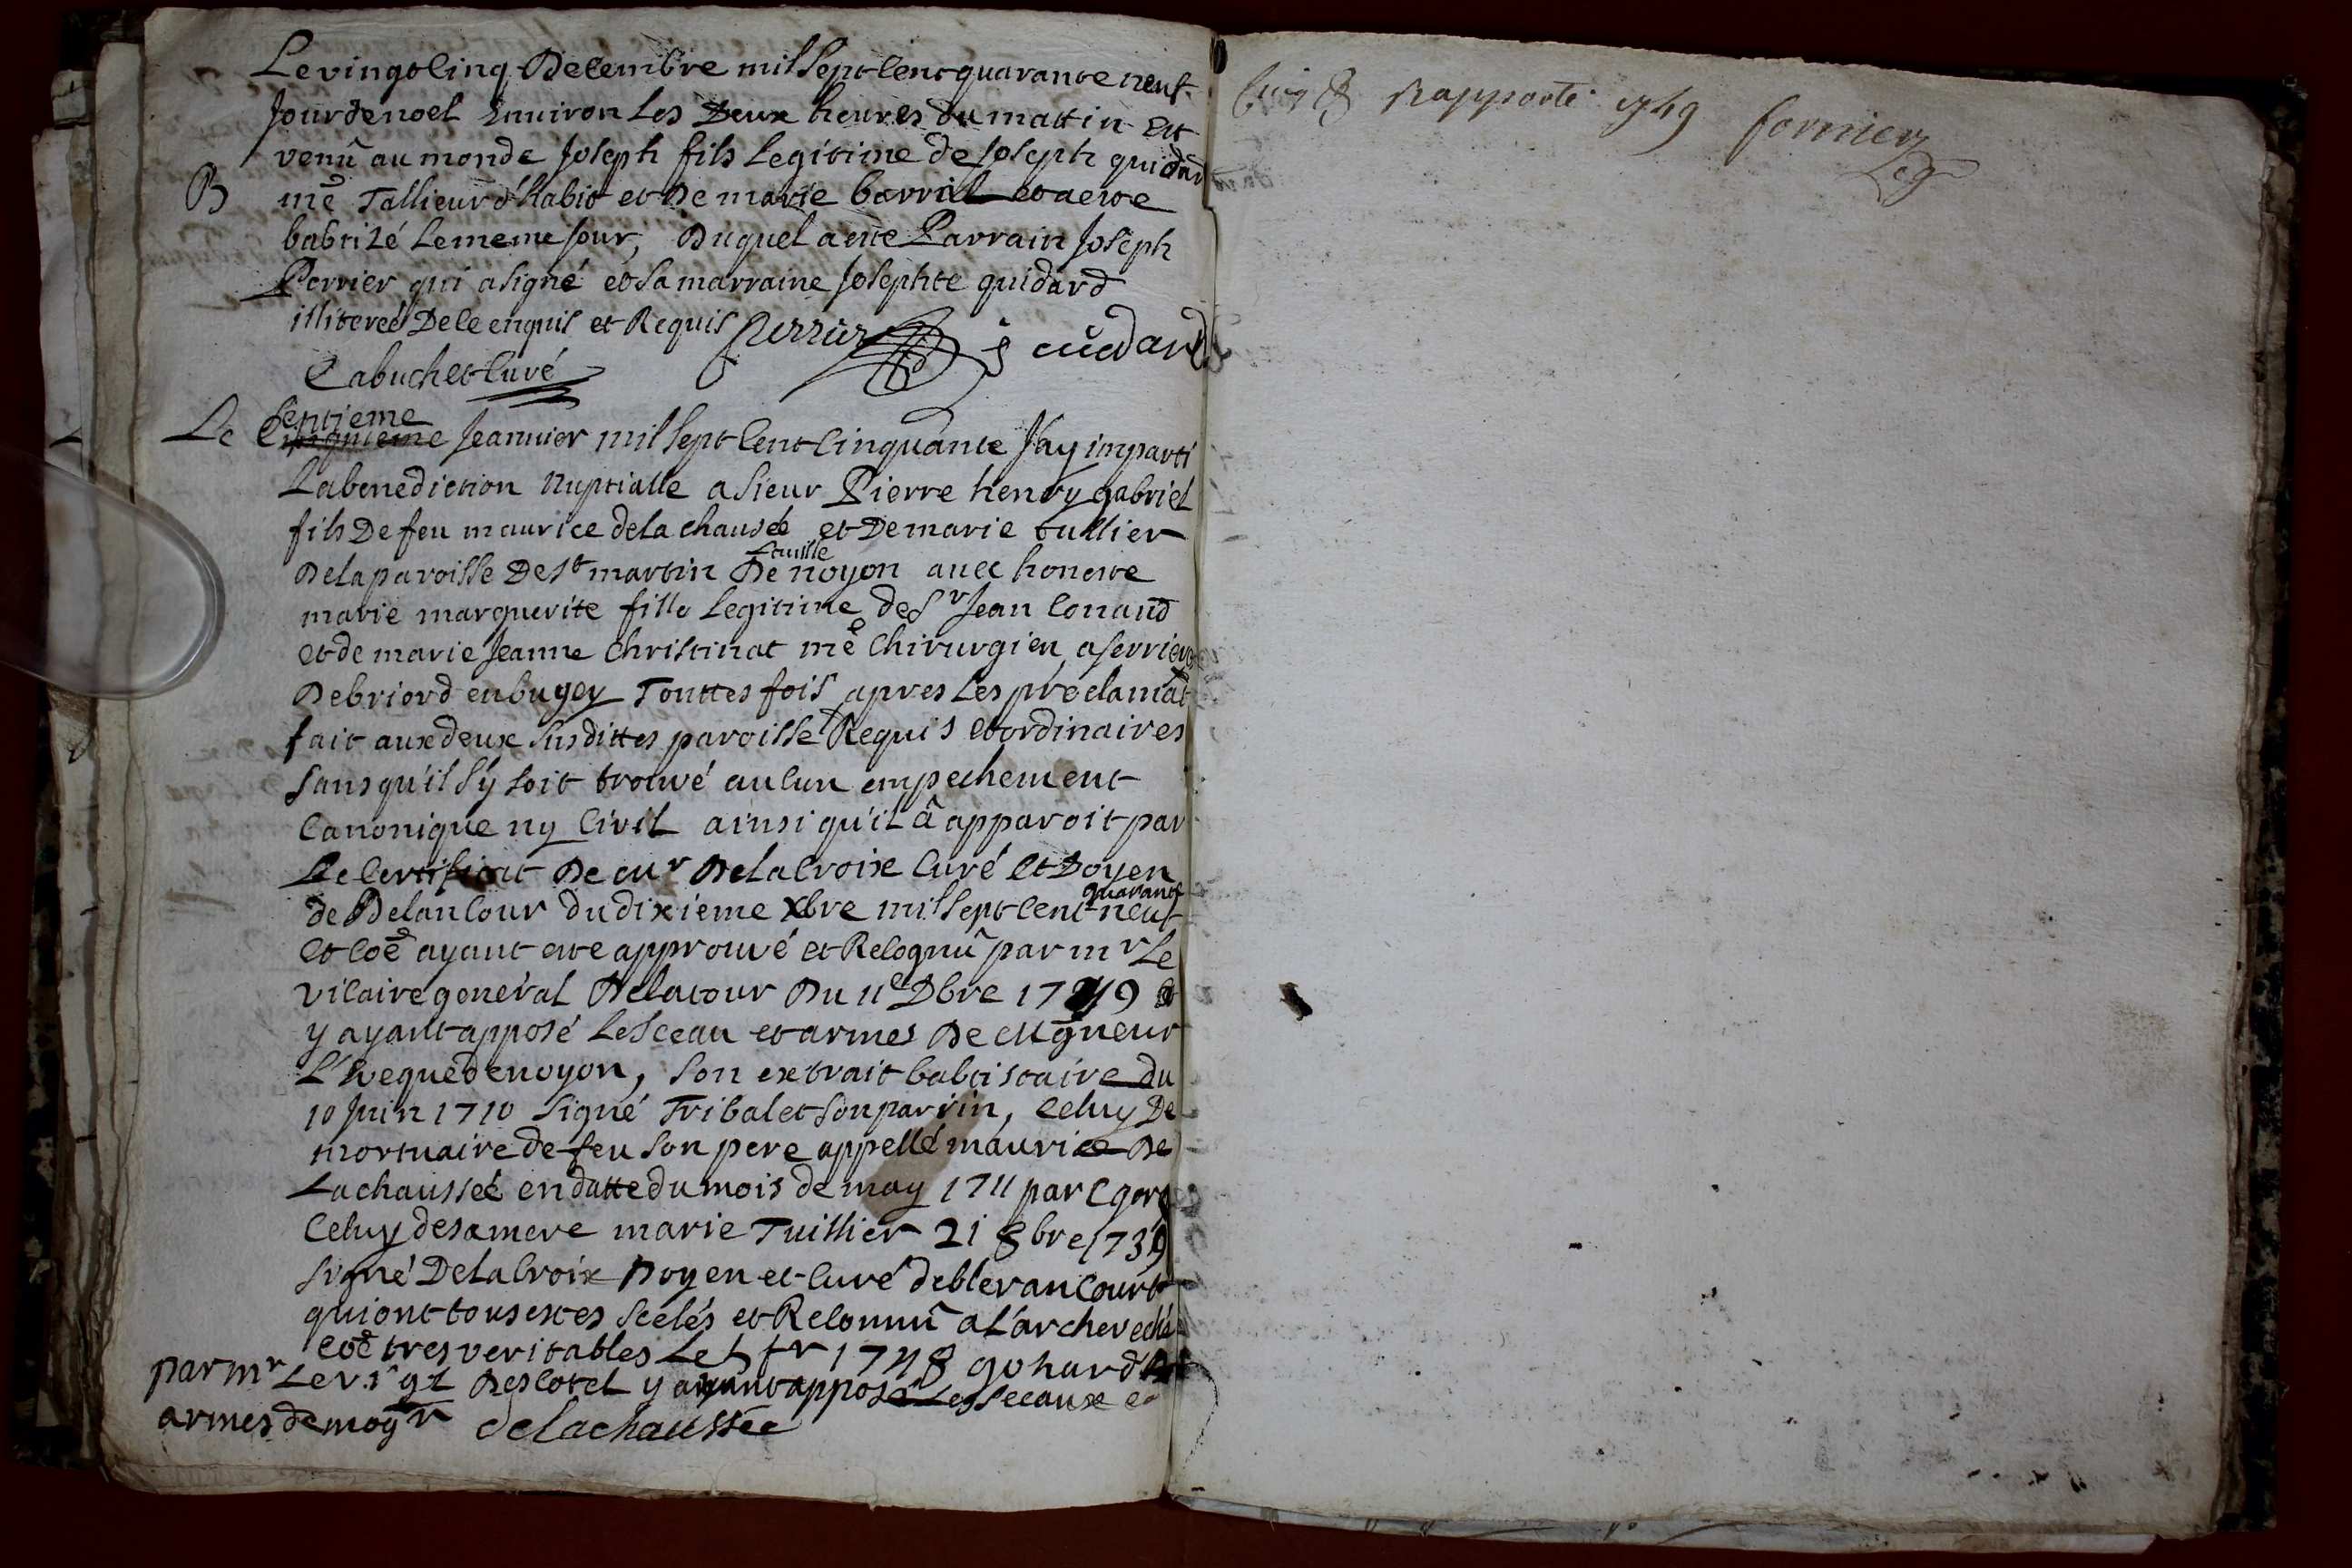 Le vingt Cinq Decembre mil Sept Cent quarante neuf
Jour de noel Environ Les Deux heures du mattin Est
venû au monde Joseph fils Legitime de Joseph guidard
B me Tallieur d'habit et De marie barriel et a ette
babtizé Le meme Jour, Duquel a ette Parrain Joseph
Perrier qui a signé et Sa marraine Josephte guidard
illiteree De Ce enquis et Requis Perrier j cudard
Cabuchet Curé
Septieme
Le Cinquieme Jeanvier mil Sept Cent Cinquante J'ay imparti
La benediction Nuptialle a Sieur Pierre henry gabriel
fils De feu maurice de la chausée et De marie tullier
La ville
De la paroisse De St martin De noyon avec honette
marie marguerite fille Legitime de Sr Jean Conand
et de marie Jeanne Christinat me Chirurgien a serrieres
De briord en bugey Touttes fois apres Les proclamat
fait aux deux Susdittes paroisse Requis et ordinaires
Sans qu'il S'y soit trouvé auCun empechement
Canonique ny Civil ainsi qu'il â apparoit par
Le Certificat De mr De la Croix Curé et Doyen
quarante
de Delancour du dixieme Xbre mil Sept Cent neuf
et Coe ayant ette approuvé et ReCognû par mr Le
viCaire general Delatour Du 11e Dbre 1749 &
y ayant apposé Le Sceau et armes De Mgneur
L'Eveque de noyon, Son extrait babtistaire du
10 Juin 1710 Signé Tribalet Son parrin, Celuy De
mortuaire de feu Son pere appellé maurice De
La chaussée en datte du mois de may 1711 par
Celuy de sa mere marie Tuillier 21 8bre 1739
Signé De la Croix Doyen et Curé de blerancourt
qui ont tous ettes Scelés et ReConnû a L'archeveché
tres veritables Le 1748 gohard
par mr Le v. gl Descotel y ayant apposé Les Sceaux et
armes de mogr delachaussée
rapporté 1749 fornier